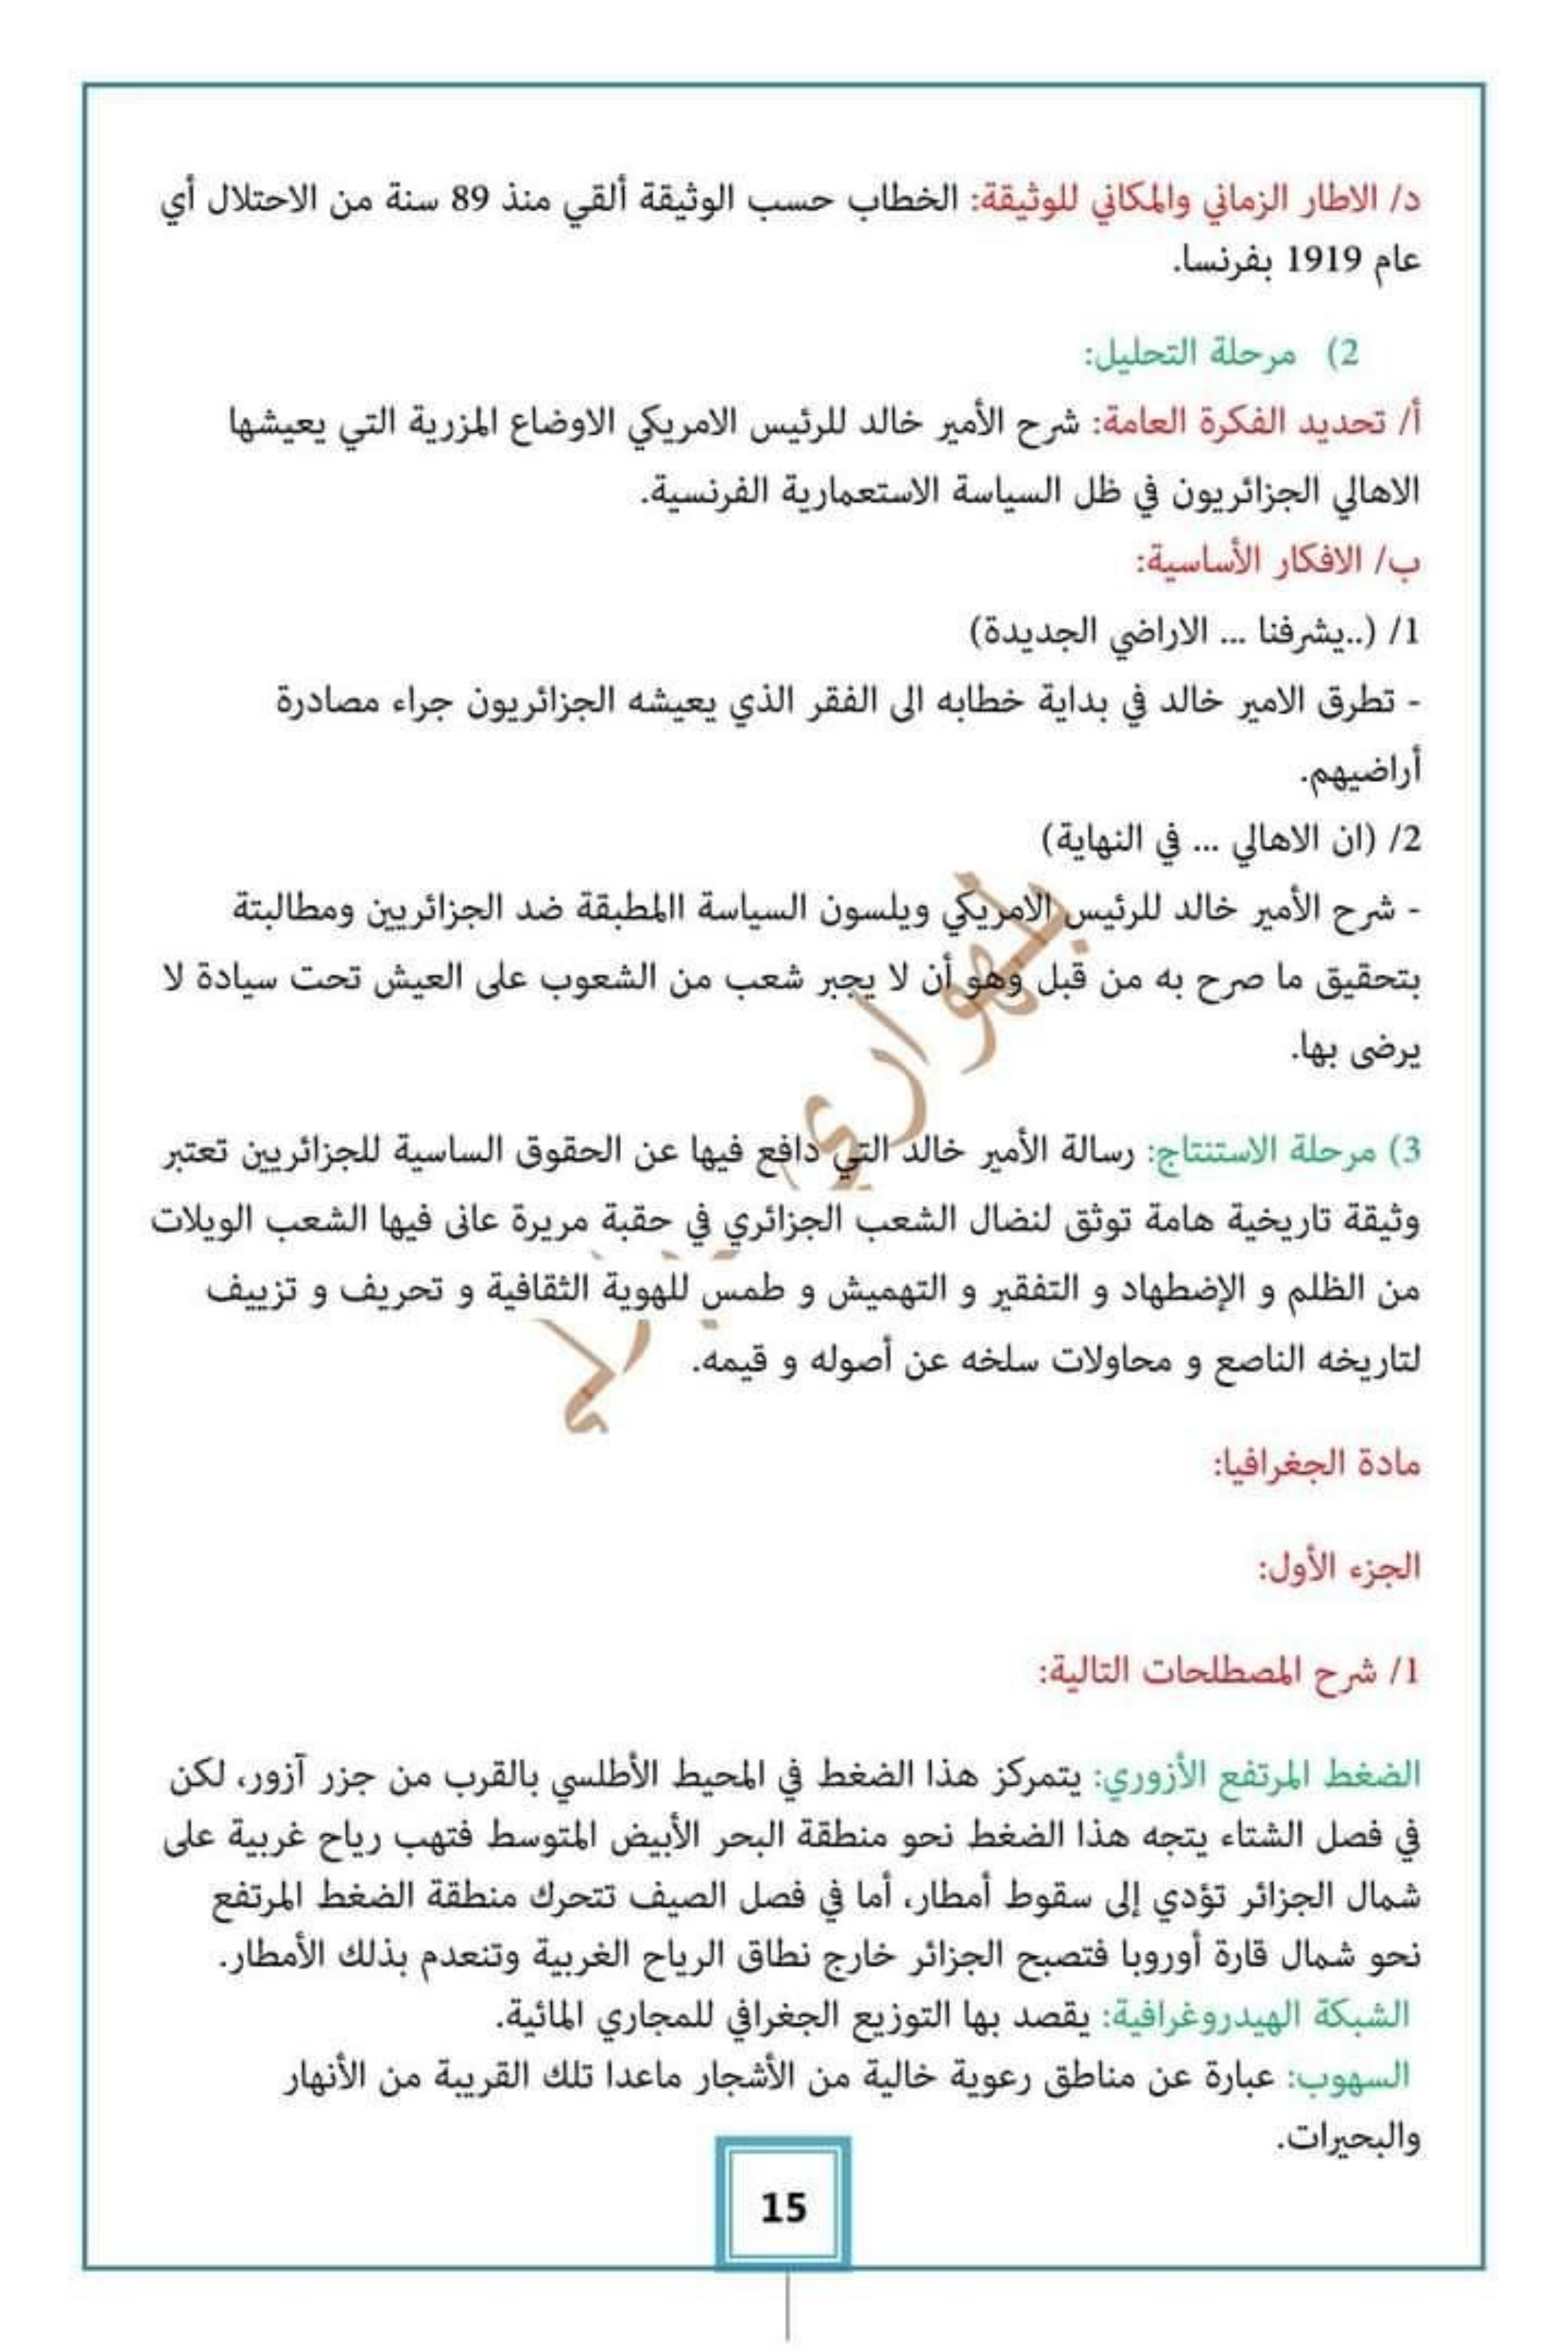 د/ الاطار الزماني والمكاني للوثيقة: الخطاب حسب الوثيقة ألقي منذ 89 سنة من الاحتلال أي
عام 1919 بفرنسا.
2) مرحلة التحليل:
أ/ تحديد الفكرة العامة: شرح الأمير خالد للرئيس الامريكي الاوضاع المزرية التي يعيشها
الاهالي الجزائريون في ظل السياسة الاستعمارية الفرنسية.
ب/ الافكار الأساسية:
1/ (..يشرفنا ... الاراضي الجديدة)
- تطرق الامير خالد في بداية خطابه الى الفقر الذي يعيشه الجزائريون جراء مصادرة
أراضيهم.
2/ (ان الاهالي ... في النهاية)
- شرح الأمير خالد للرئيس الامريكي ويلسون السياسة االمطبقة ضد الجزائريين ومطالبتة
بتحقيق ما صرح به من قبل وهو أن لا يجبر شعب من الشعوب على العيش تحت سيادة لا
يرضى بها.
3) مرحلة الاستنتاج: رسالة الأمير خالد التي دافع فيها عن الحقوق الساسية للجزائريين تعتبر
وثيقة تاريخية هامة توثق لنضال الشعب الجزائري في حقبة مريرة عانى فيها الشعب الويلات
من الظلم و الإضطهاد و التفقير و التهميش و طمس للهوية الثقافية و تحريف و تزييف
لتاريخه الناصع و محاولات سلخه عن أصوله و قيمه.
مادة الجغرافيا:
الجزء الأول:
1/ شرح المصطلحات التالية:
الضغط المرتفع الأزوري: يتمركز هذا الضغط في المحيط الأطلسي بالقرب من جزر آزور، لكن
في فصل الشتاء يتجه هذا الضغط نحو منطقة البحر الأبيض المتوسط فتهب رياح غربية على
شمال الجزائر تؤدي إلى سقوط أمطار، أما في فصل الصيف تتحرك منطقة الضغط المرتفع
نحو شمال قارة أوروبا فتصبح الجزائر خارج نطاق الرياح الغربية وتنعدم بذلك الأمطار.
الشبكة الهيدروغرافية: يقصد بها التوزيع الجغرافي للمجاري المائية.
السهوب: عبارة عن مناطق رعوية خالية من الأشجار ماعدا تلك القريبة من الأنهار
والبحيرات.
15
بلهواري